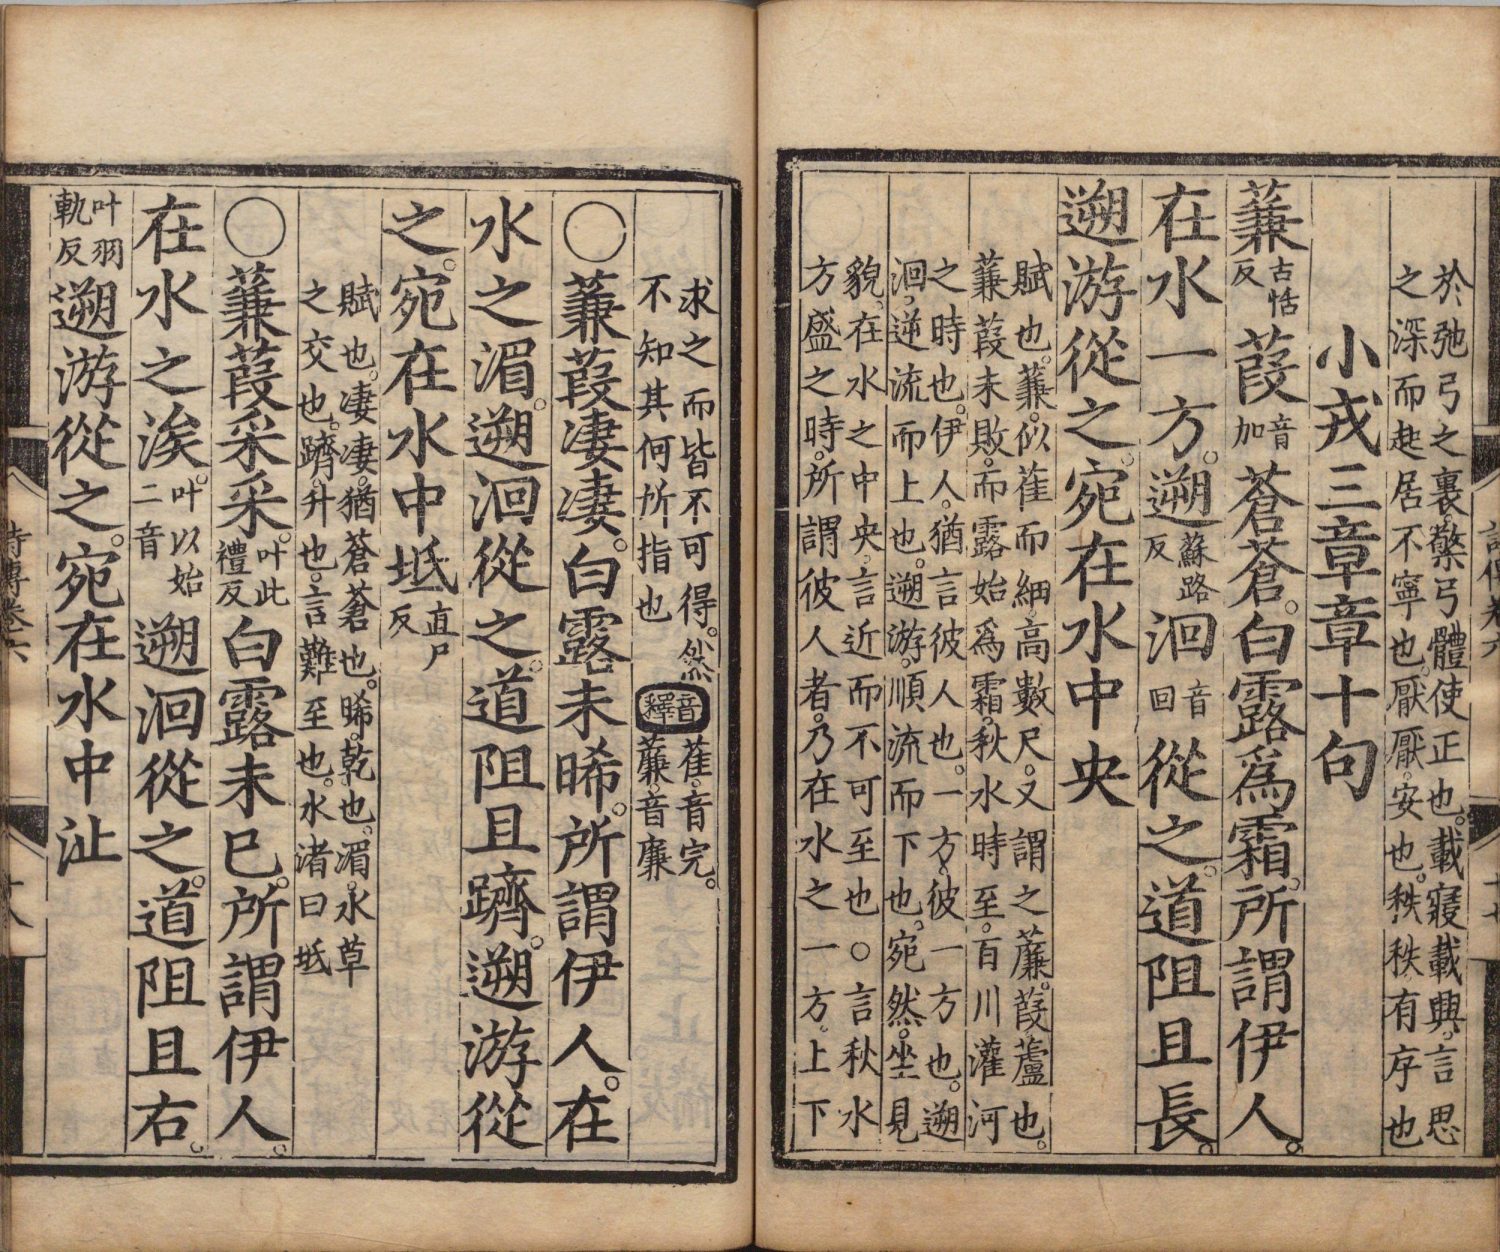 於弛弓之裏檠弓體使正也載寢載興言思
之深而起居不寧也厭厭安也秩秩有序也
小戎三章章十句
蒹古恬反葭音加蒼蒼白露爲霜所謂伊人
在水一方遡蘇路反洄音回從之道阻且長
遡游從之宛在水中央
賦也蒹似萑而細高數尺又謂之薕葭蘆也
蒹葭未敗而露始爲霜秋水時至百川灌河
之時也伊人猶言彼人也一方彼一方也遡
洄逆流而上也遡游順流而下也宛然坐見
貌在水之中央言近而不可至也○言秋水
方盛之時所謂彼人者乃在水之一方上下
求之而皆不可得然音釋萑音完
不知其何所指也薕音廉
○蒹葭凄凄白露未晞所謂伊人在
水之湄遡洄從之道阻且躋遡游從
之宛在水中坻直尸反
賦也凄凄猶蒼蒼也晞乾也湄水草
之交也躋升也言難至也水渚曰坻
○蒹葭采采叶此禮反白露未已所謂伊人
在水之涘叶以始二音遡洄從之道阻且右
叶羽軌反遡游從之宛在水中沚
詩傳卷六
十八